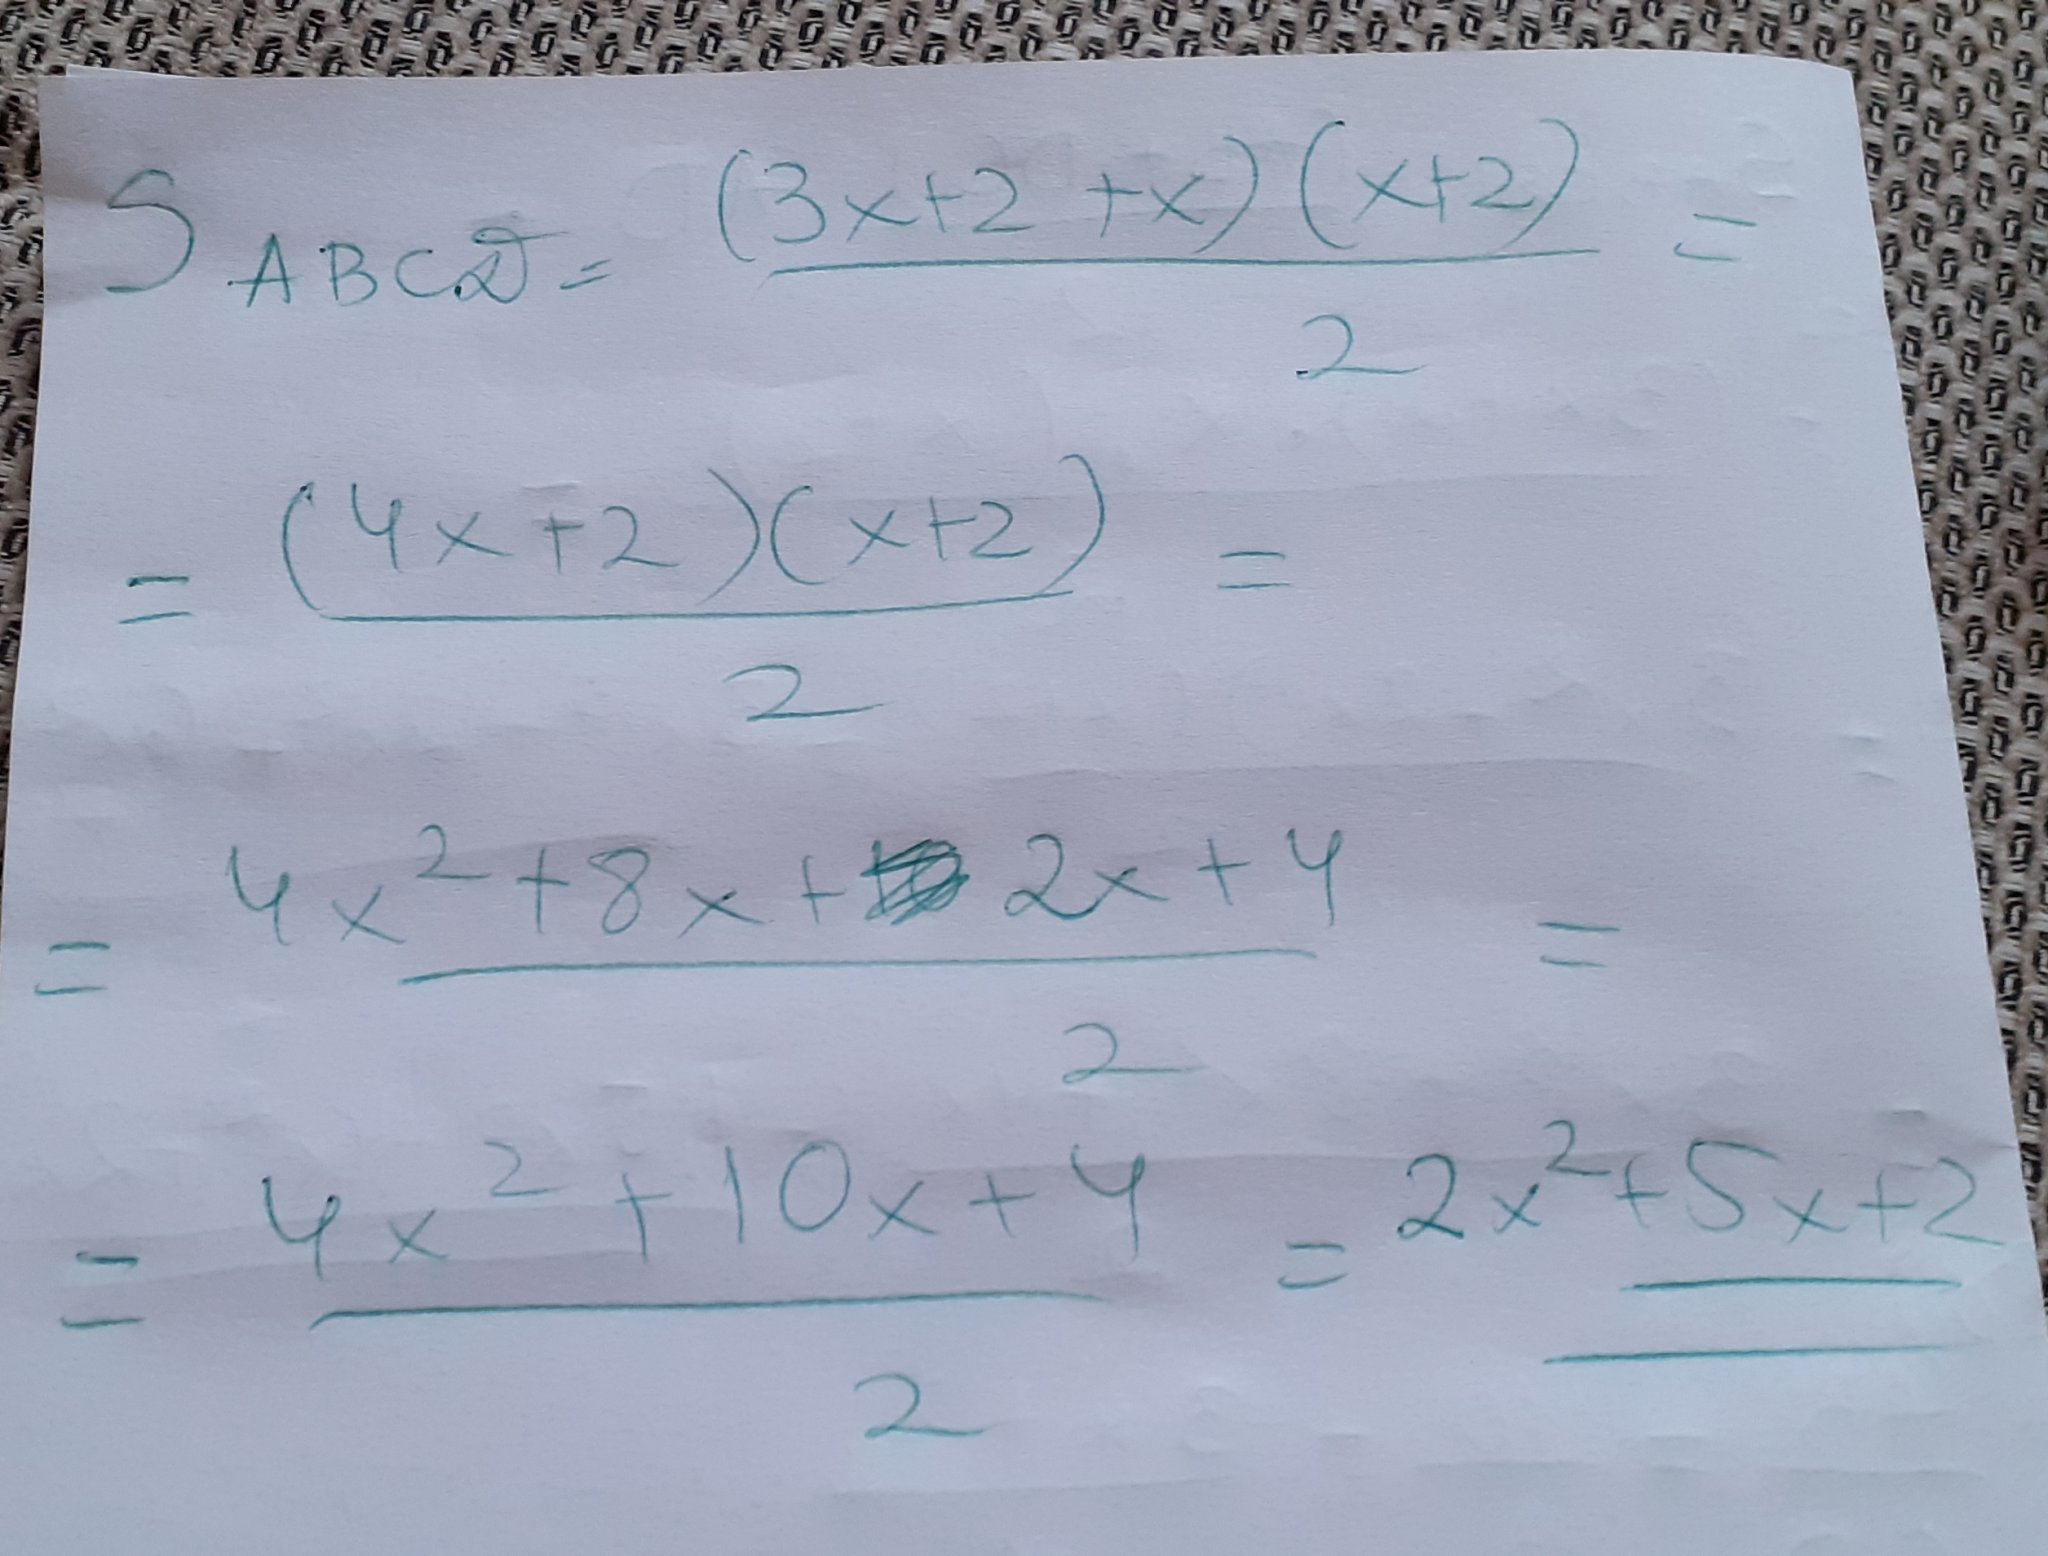 S ABCD = (3x+2+x)(x+2) / 2 =
= (4x+2)(x+2) / 2 =
= 4x² + 8x + 2x + 4 / 2 =
= 4x² + 10x + 4 / 2 = 2x² + 5x + 2